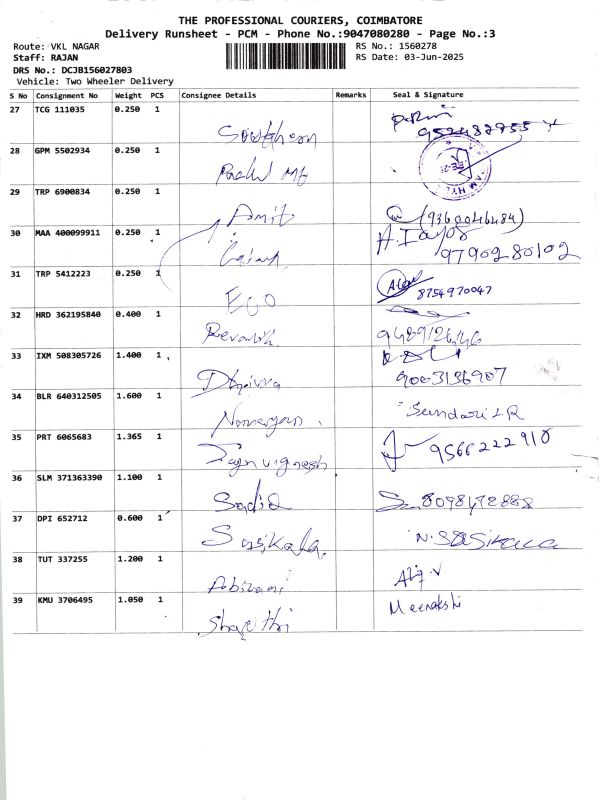 THE PROFESSIONAL COURIERS, COIMBATORE
Delivery Runsheet - PCM - Phone No.:9047080280 - Page No.:3
Route: VKL NAGAR RS No.: 1560278
Staff: RAJAN RS Date: 03-Jun-2025
DRS No.: DCJB156027803
Vehicle: Two Wheeler Delivery
S No Consignment No Weight PCS Consignee Details Remarks Seal & Signature
27 TCG 111035 0.250 1
Southern 952482755
28 GPM 5502934 0.250 1
29 TRP 6900834 0.250 1
Amit (9360046484)
30 MAA 400099911 0.250 1
9790280102
31 TRP 5412223 0.250 1
EGO 8754970047
32 HRD 362195840 0.400 1
Revanth
33 IXM 508305726 1.400 1
Dhivya 9003136907
34 BLR 640312505 1.600 1
Sundari
35 PRT 6065683 1.365 1
vignesh 9566222910
36 SLM 371363390 1.100 1
Sadiq
37 DPI 652712 0.600 1
Sasikala. N.SASIKALA
38 TUT 337255 1.200 1
Abirami
39 KMU 3706495 1.050 1 Meenakshi